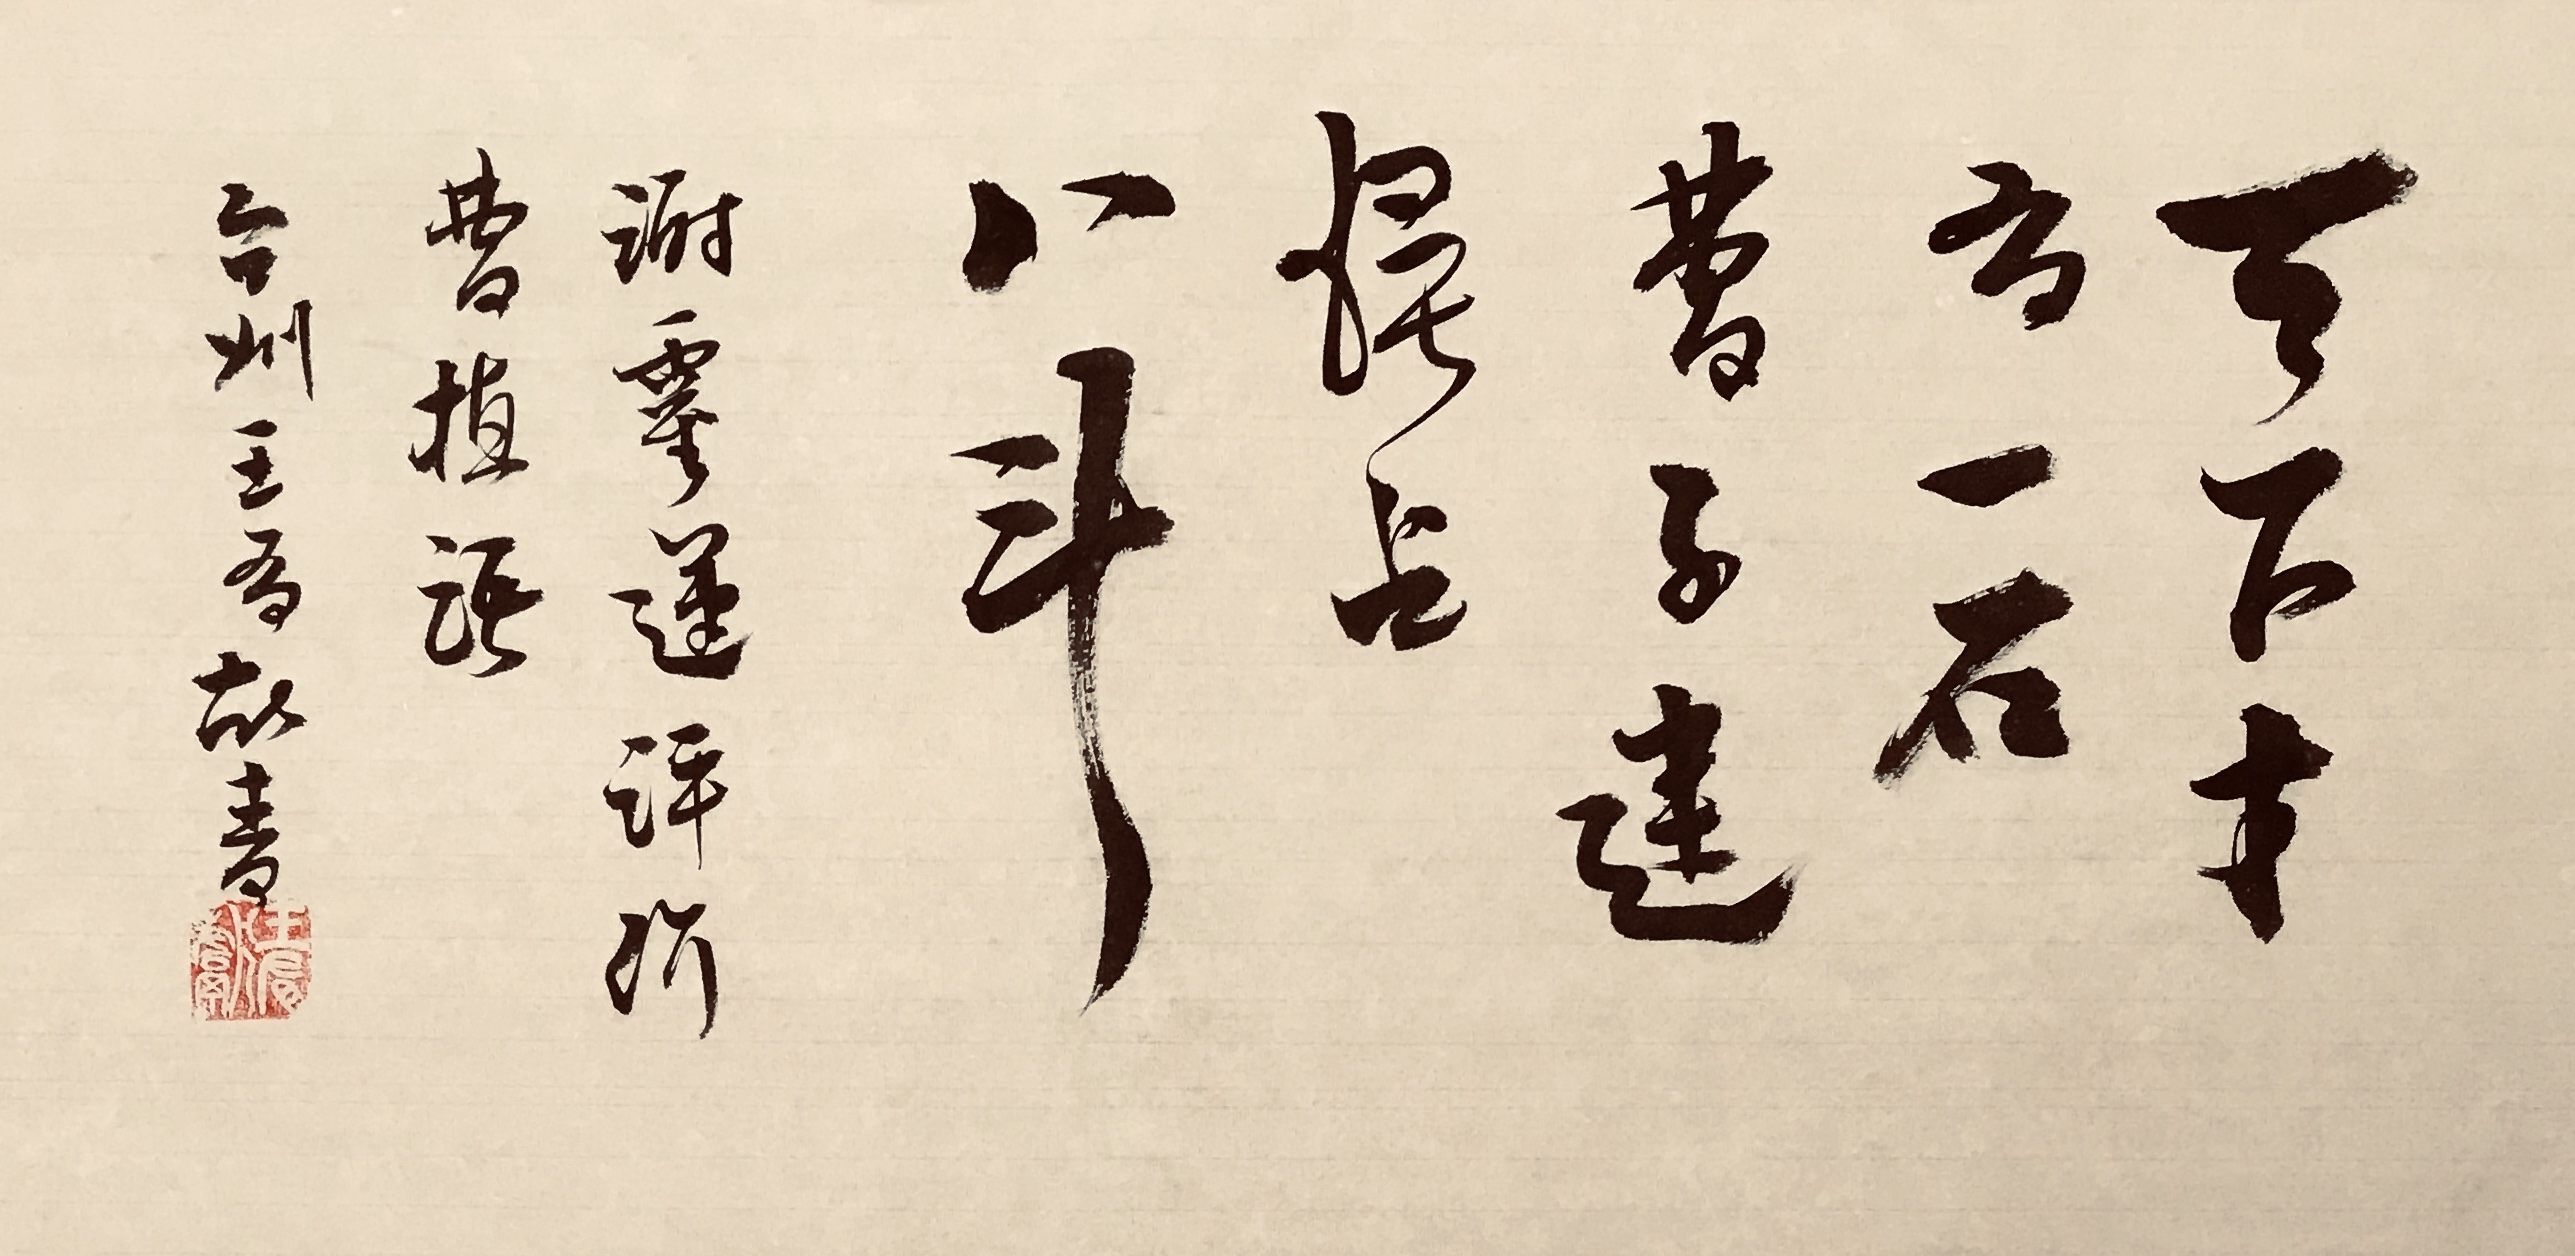 天下才
有一石
曹子建
獨占
八斗
謝靈運評
曹植語
州王有書